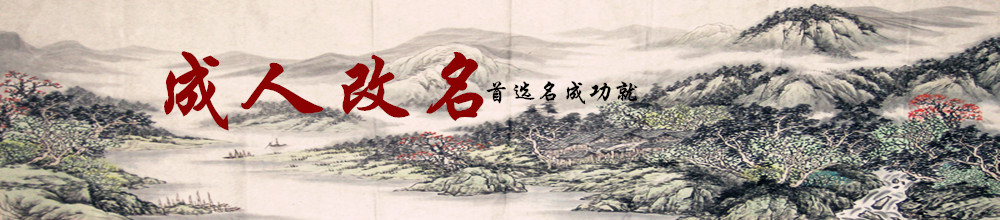 成人改名
首选名成功就